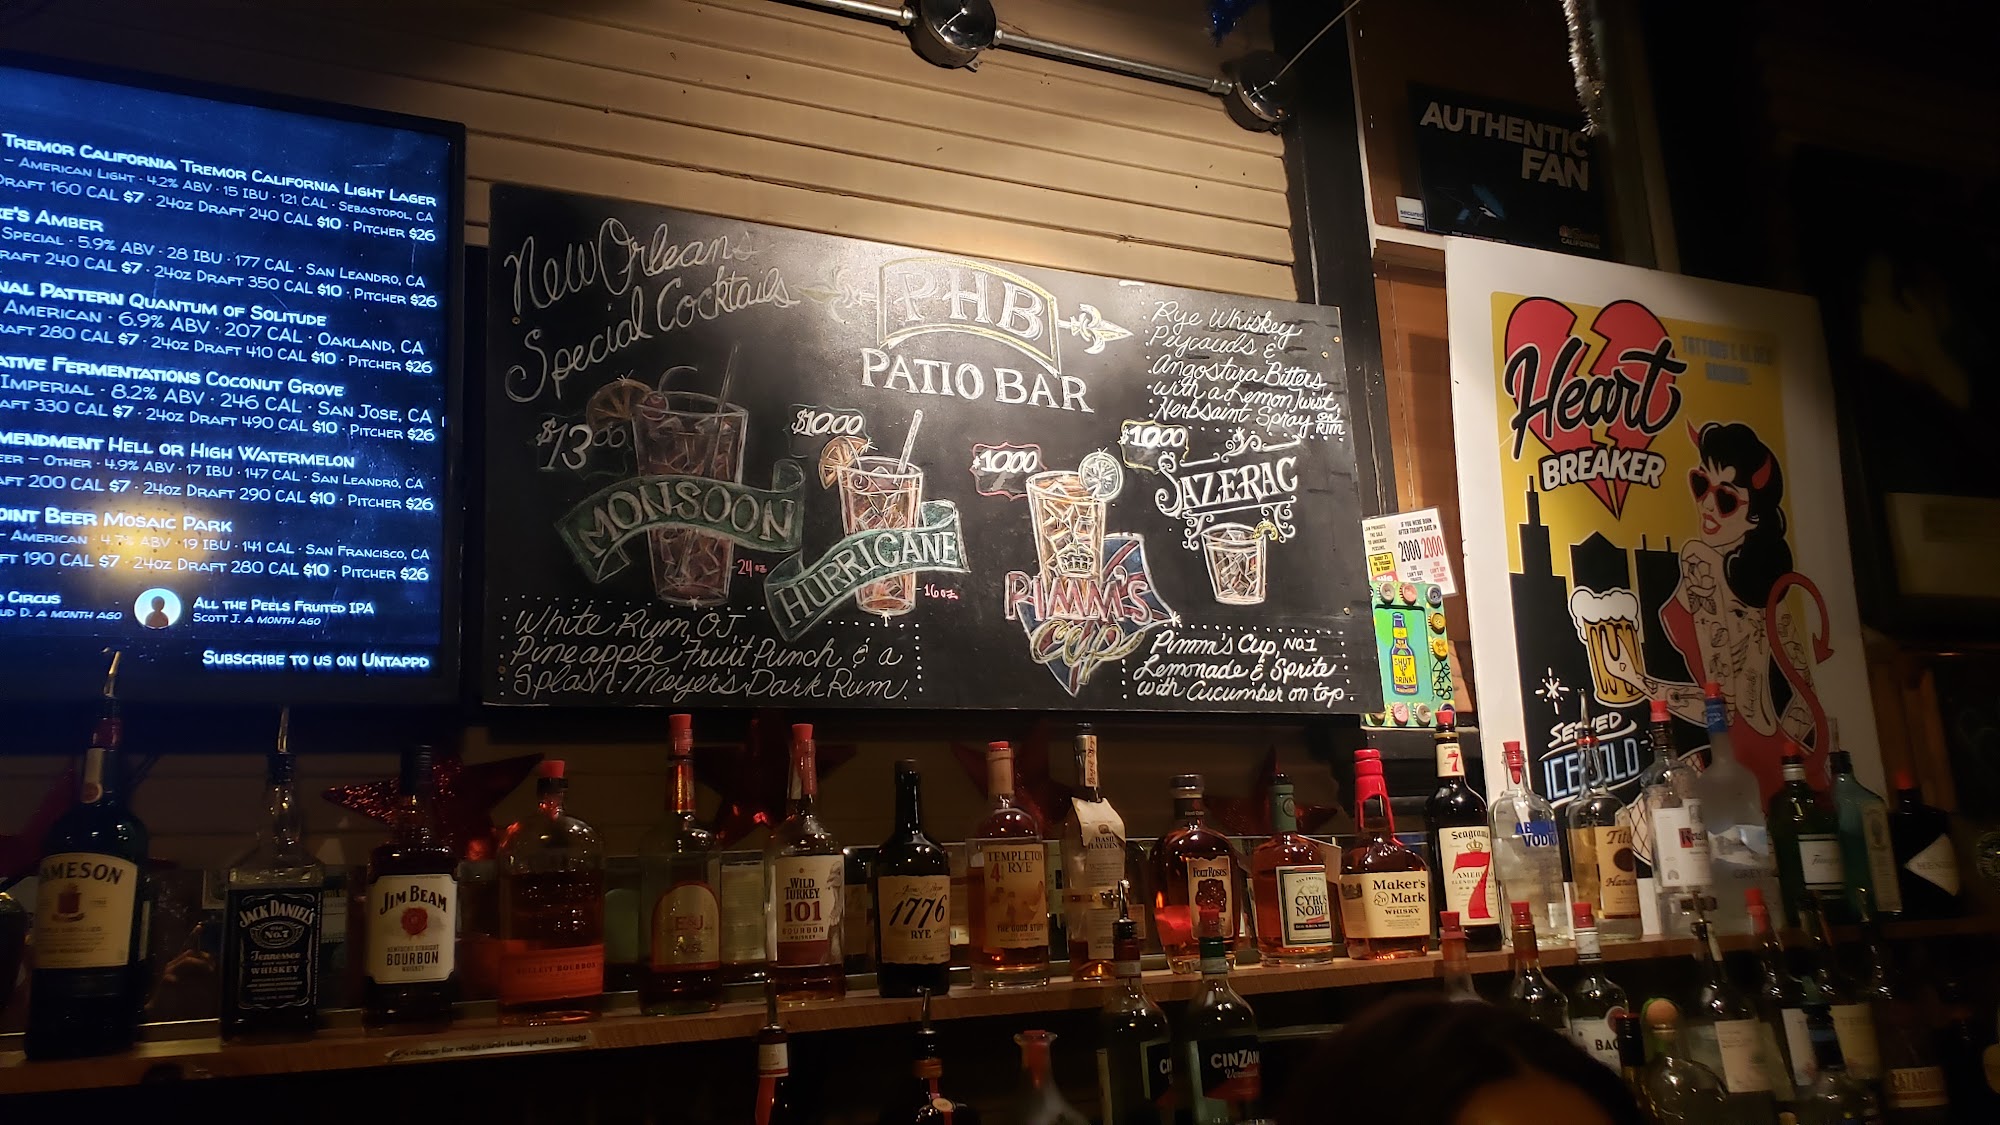 Tremor California Tremor California Light Lager
- American Light · 4.2% ABV · 15 IBU · 121 CAL · Sebastopol, CA
Draft 160 CAL $7 · 24oz Draft 240 CAL $10 · Pitcher $26
Amber
Special · 5.9% ABV · 28 IBU · 177 CAL · San Leandro, CA
240 CAL $7 · 24oz Draft 350 CAL $10 · Pitcher $26
Pattern Quantum of Solitude
American · 6.9% ABV · 207 CAL · Oakland, CA
280 CAL $7 · 24oz Draft 410 CAL $10 · Pitcher $26
Fermentations Coconut Grove
Imperial - 8.2% ABV · 246 CAL · San Jose, CA
330 CAL $7 · 24oz Draft 490 CAL $10 · Pitcher $26
Hell or High Watermelon
- Other · 4.9% ABV · 17 IBU · 147 CAL · San Leandro, CA
200 CAL $7 · 24oz Draft 290 CAL $10 · Pitcher $26
Beer Mosaic Park
- American · 4.7% ABV · 19 IBU · 141 CAL · San Francisco, CA
190 CAL $7 · 24oz Draft 280 CAL $10 · Pitcher $26
Circus
D. a month ago
All the Peels Fruited IPA
Scott J. a month ago
Subscribe to us on Untappd
New Orleans
Special Cocktails
PHB
PATIO BAR
$13.00
MONSOON
24 oz
White Rum, OJ,
Pineapple, Fruit Punch & a
Splash Meyer's Dark Rum
$10.00
HURRICANE
16 oz
$10.00
PIMM'S
CUP
Pimm's Cup, NO1
Lemonade & Sprite
with Cucumber on top.
Rye Whiskey
Peycauds &
Angostura Bitters
with a Lemon Twist,
Herbsaint Spray on
Rim
$10.00
SAZERAC
AUTHENTIC
FAN
CALIFORNIA
2000 2000
SHUT
UP &
DRINK!
Heart
BREAKER
SERVED
ICE COLD
JAMESON
JACK DANIEL'S
No.7
Tennessee
WHISKEY
JIM BEAM
KENTUCKY STRAIGHT
BOURBON
WHISKEY
BULLEIT BOURBON
E&J
WILD
TURKEY
101
BOURBON
1776
RYE
TEMPLETON
4 RYE
THE GOOD STUFF
BASIL
HAYDEN
Four Roses
CYRUS
NOBLE
Maker's
Mark
WHISKY
7
Seagram's
7
AMERICAN
ABSOLUT
VODKA
Tito's
Handmade
GREY
CINZANO
Vermouth
charge for credit cards that spend the night